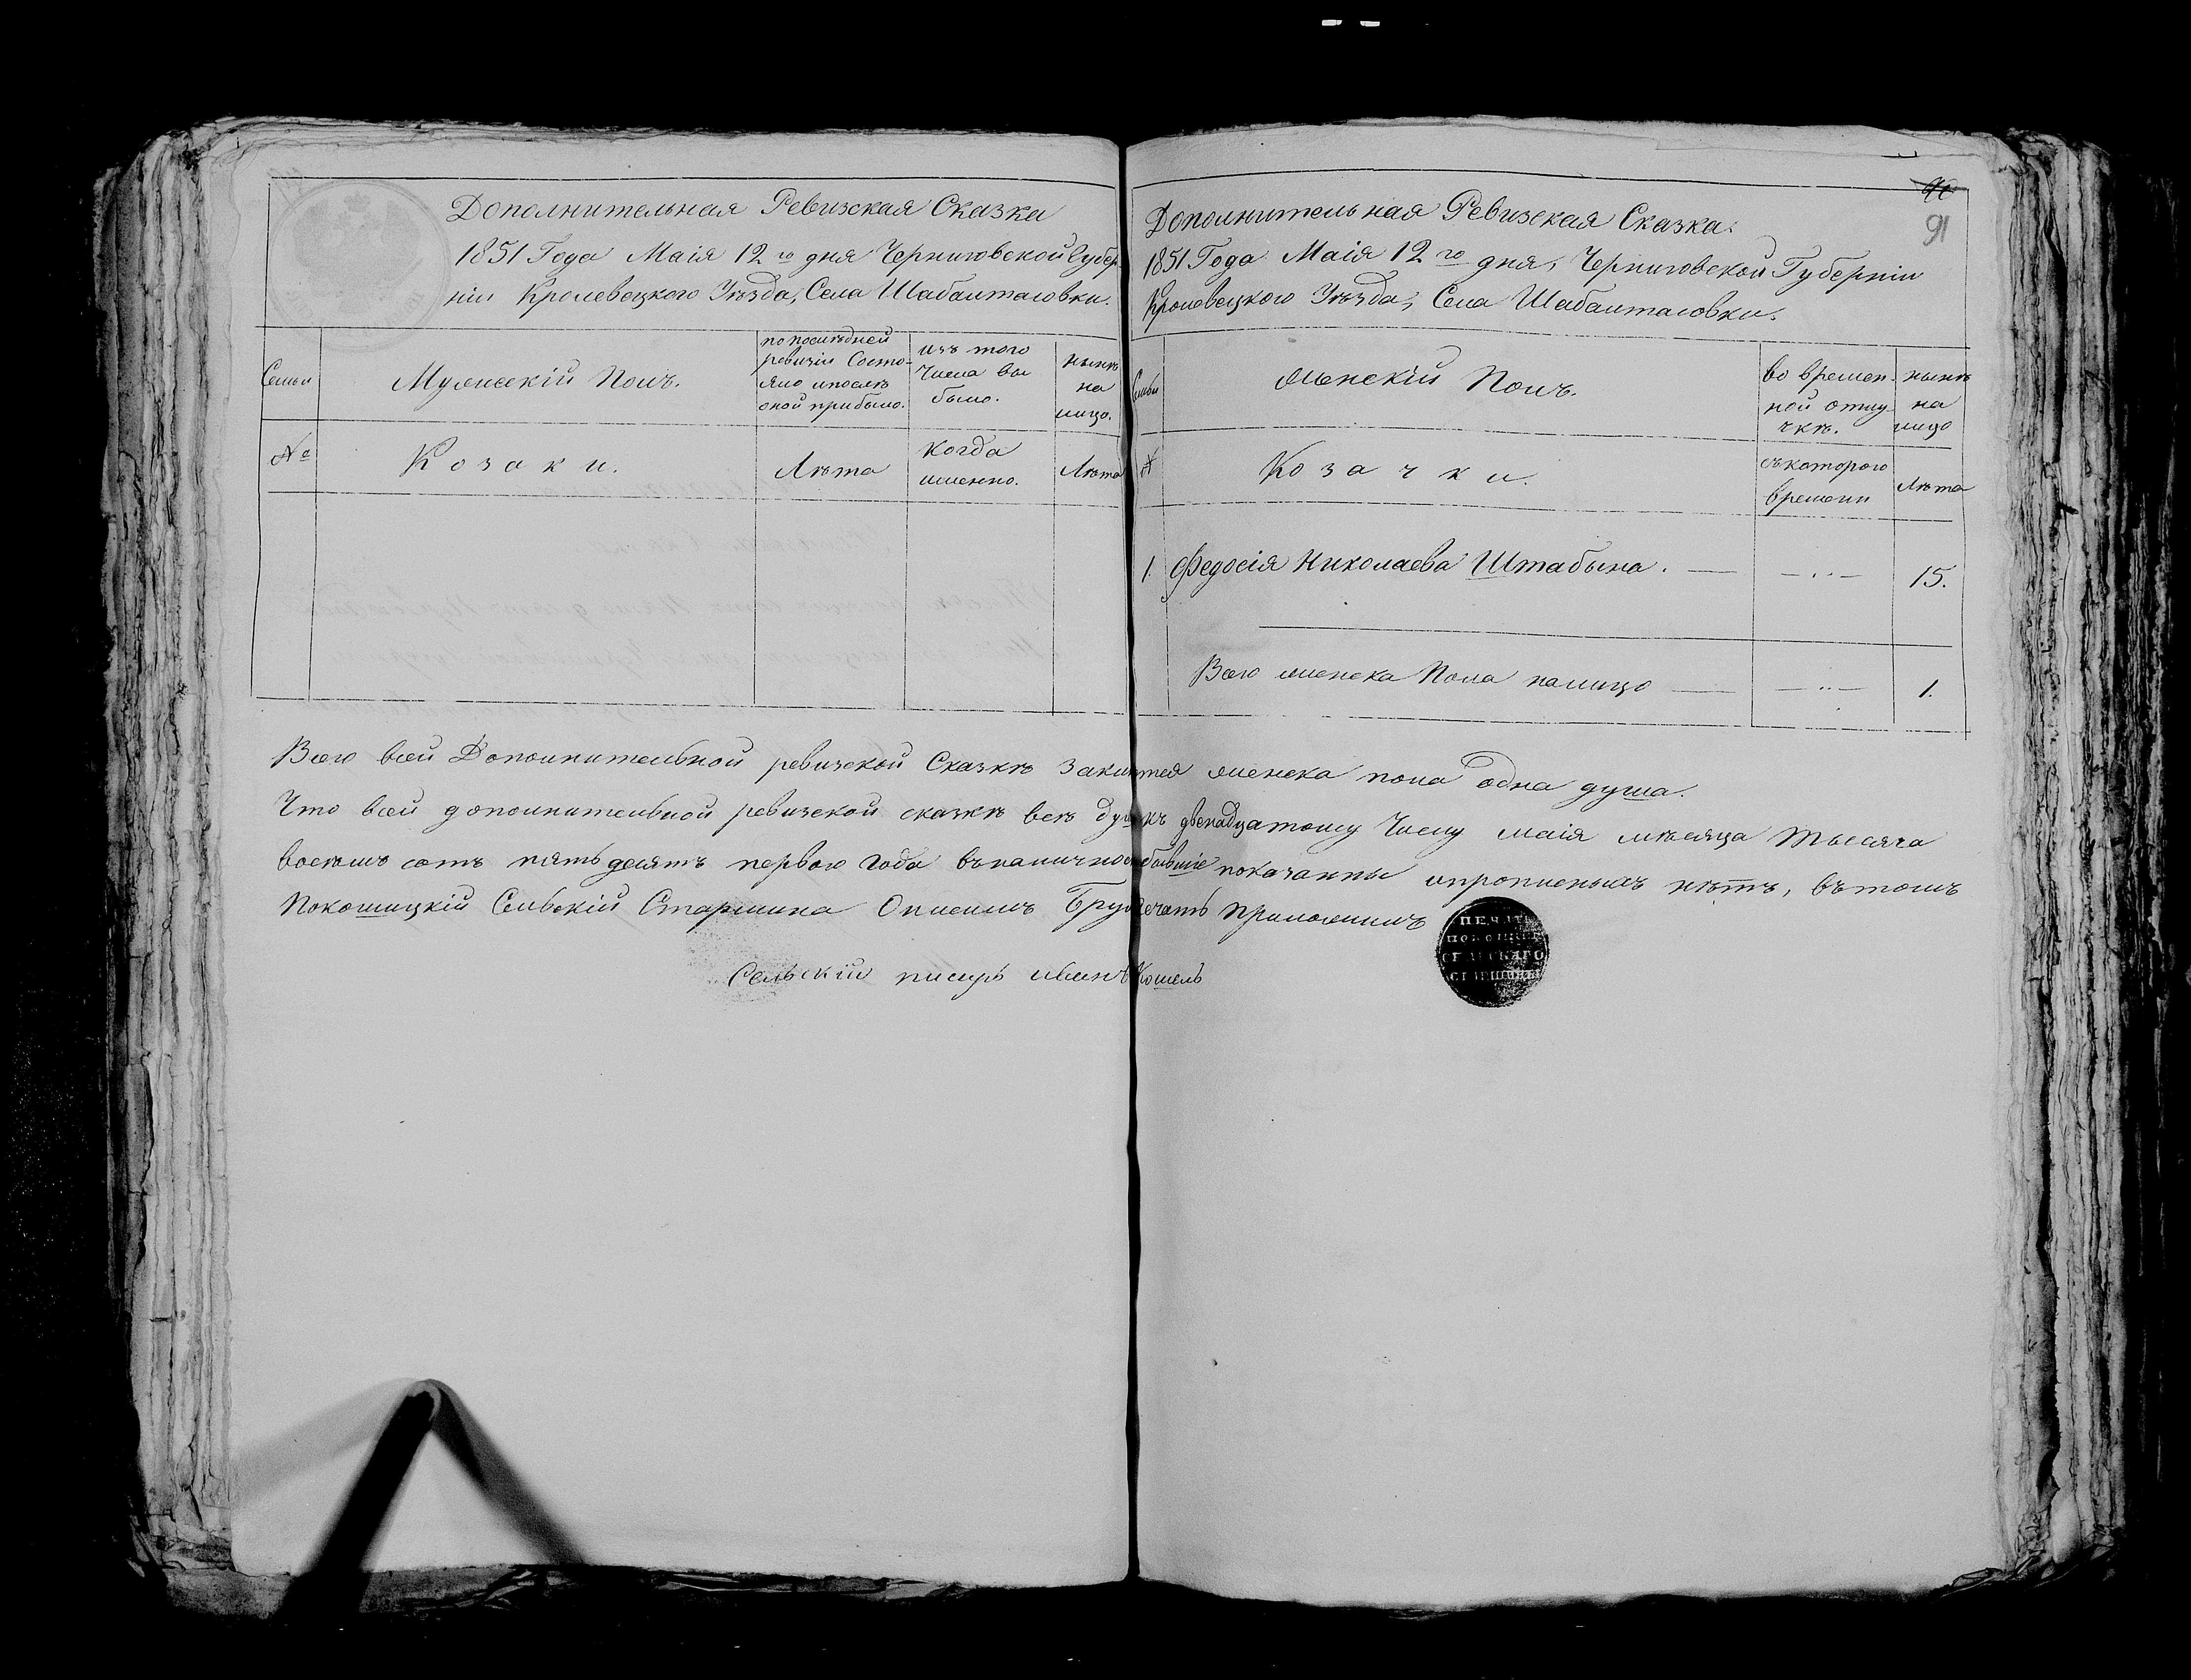 Дополнительная Ревизская Сказка
1851 Года Маія 12го дня Черниговской Губер
ніи Кролевецкого Уѣзда, Села Шабалтасовки.
Семьи
Мужескій Полъ.
по послѣдней
ревизіи Состо-
яло и послѣ
оной прибыло.
изъ того
Числа вы
было.
нынѣ
на
лицо.
№
Козаки.
Лѣта
Когда
именно.
Лѣта
90
91
Дополнительная Ревизская Сказка.
1851 Года Маія 12го дня, Черниговской Губерніи
Кролевецкого Уѣзда, Села Шабалтасовки.
Семьи
Женскій Полъ.
во времен-
ной отлу-
чкѣ.
нынѣ
на
лицо
№
Козачки.
съ которого
времени
Лѣта
1. Федосія Николаева Штабына. 15.
Всего женска Пола налицо 1.
Всего всей Дополнительной ревизской Сказкѣ женска пола одна душа.
Что всей дополнительной ревизской сказкѣ всѣ двенадцатому Числу маія мѣсяца тысяча
восемъ сотъ пятьдесятъ первого года бывшіе показанны и прописныхъ нѣтъ, въ томъ
Покошицкій Сельскій Старшина Онисимъ печать приложилъ
Сельскій писарь Кошель
ПЕЧАТЬ
ПОКОШИЦ
СЕЛЬСКАГО
СТАРШИНЫ